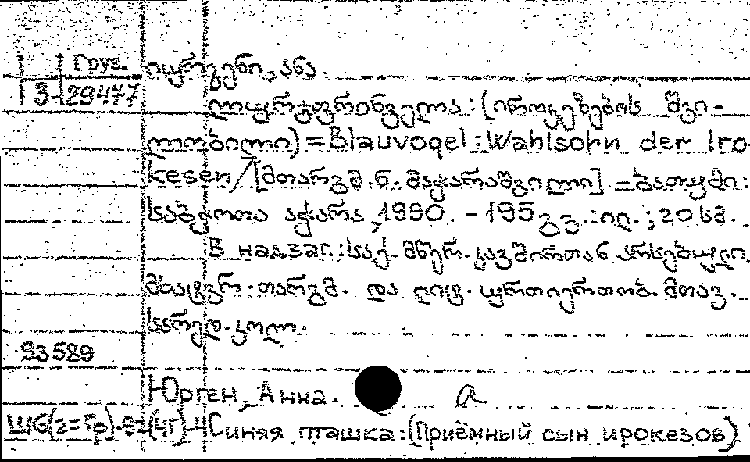 Груз.
3-29477
იურგენი, ანა.
ლურჯფრინველა: (იროკეზების შვი-
ლობილი) = Blauvogel: Wahlsohn der Iro-
kesen / [მთარგმ. ნ. მაჭარაშვილი] _ ბათუმი:
საბჭოთა აჭარა, 1990. - 195 გვ.: ილ.; 20 სმ.
В надзаг.: საქ. მწერ. კავშირთან არსებული
მხატვრ. თარგმ. და ლიტ. ურთიერთობ. მთავ.
სარედ. კოლ.
93589
Юрген, Анна. а
Ш6(2=Гр) Синяя пташка: (Приёмный сын ирокезов)